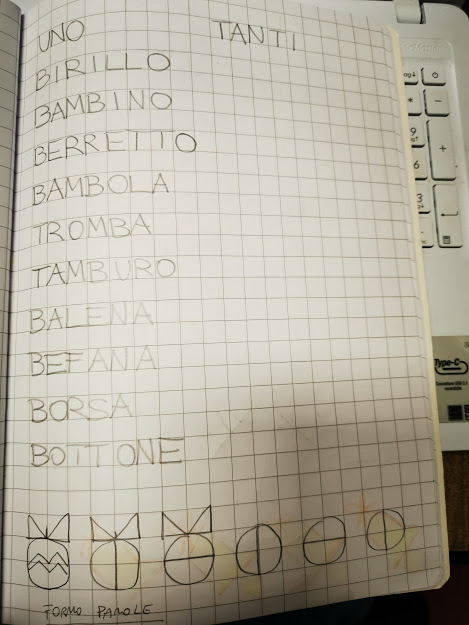 UNO TANTI
BIRILLO
BAMBINO
BERRETTO
BAMBOLA
TROMBA
TAMBURO
BALENA
BEFANA
BORSA
BOTTONE
FORMO PAROLE
*
-
9
+
6
3
Type-C